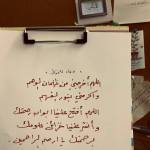 دعاء المطالعة
اللهم أخرجني من ظلمات الوهم
وأكرمني بنور الفهم
اللهم افتح علينا أبواب رحمتك
وانشر علينا خزائن علومك
برحمتك يا ارحم الراحمين